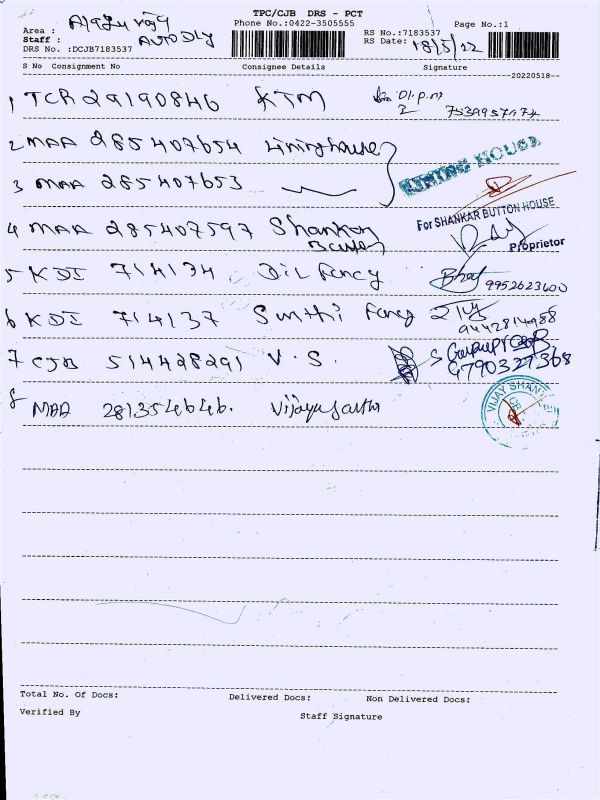 TPC/CJB DRS - PCT
Phone No.:0422-3505555
Page No.:1
Area :
Staff : AUTO DLY
DRS No. :DCJB7183537
RS No.:7183537
RS Date: 18/5/22
S No Consignment No Consignee Details Signature
--20220518--
1 TCR 29190846 KTM
2 MAA 285407654 Lininghouse
3 MAA 285407653
LINING HOUSE
4 MAA 285407597 Shankar
For SHANKAR BUTTON HOUSE
Proprietor
5 KDI 714134 Dil Fancy 9952623600
6 KDI 714137 Fancy 9442814988
7 CJB 514428291 V.S. 9790327368
8 MAA 281354646. Vijayusanthi
VIJAY SHAN
Total No. Of Docs: Delivered Docs: Non Delivered Docs:
Verified By Staff Signature